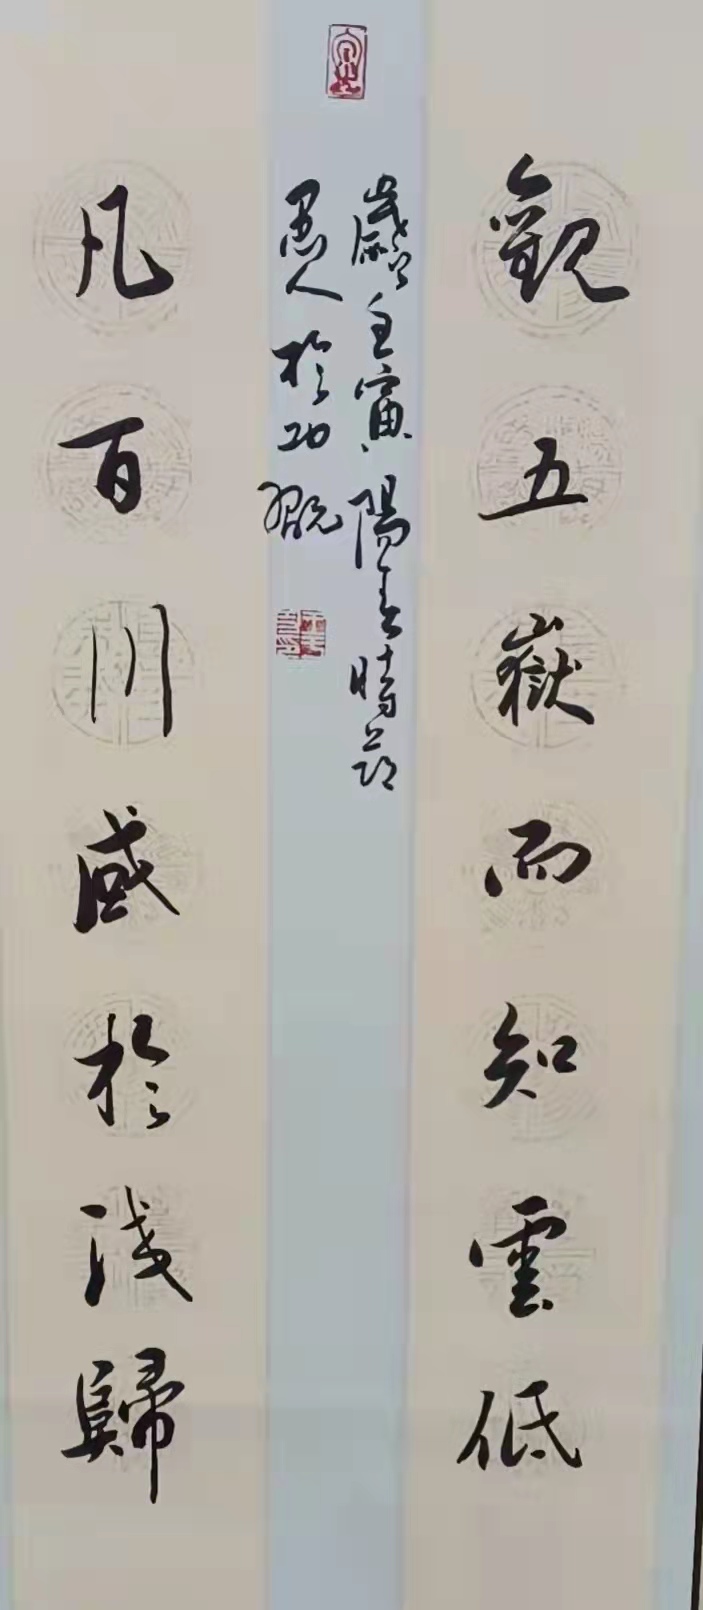 觀五嶽而知雲低
歲次壬寅陽春時節
愚人於功
凡百川感於淺歸